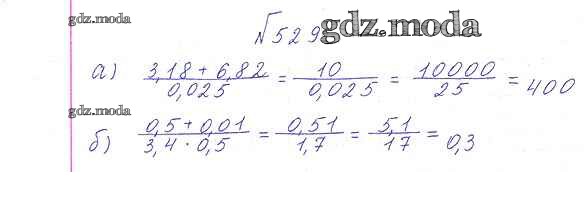 gdz.moda
№529
gdz.moda
а) (3,18 + 6,82)/0,025 = 10/0,025 = 10000/25 = 400
gdz.moda
б) (0,5 + 0,01)/(3,4 · 0,5) = 0,51/1,7 = 5,1/17 = 0,3